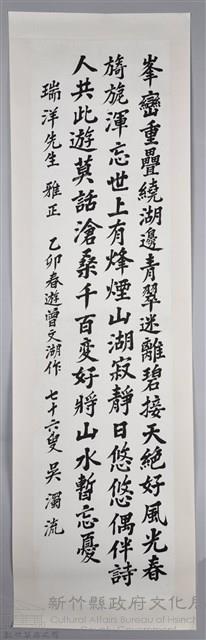 峯巒重疊繞湖邊青翠迷離碧接天絕好風光春
旖旎渾忘世上有烽煙山湖寂靜日悠悠偶伴詩
人共此遊莫話滄桑千百変好將山水暫忘憂
瑞洋先生 雅正 乙卯春遊曾文湖作 七十六叟 吳濁流
新竹縣政府文化局
Cultural Affairs Bureau of Hsinch